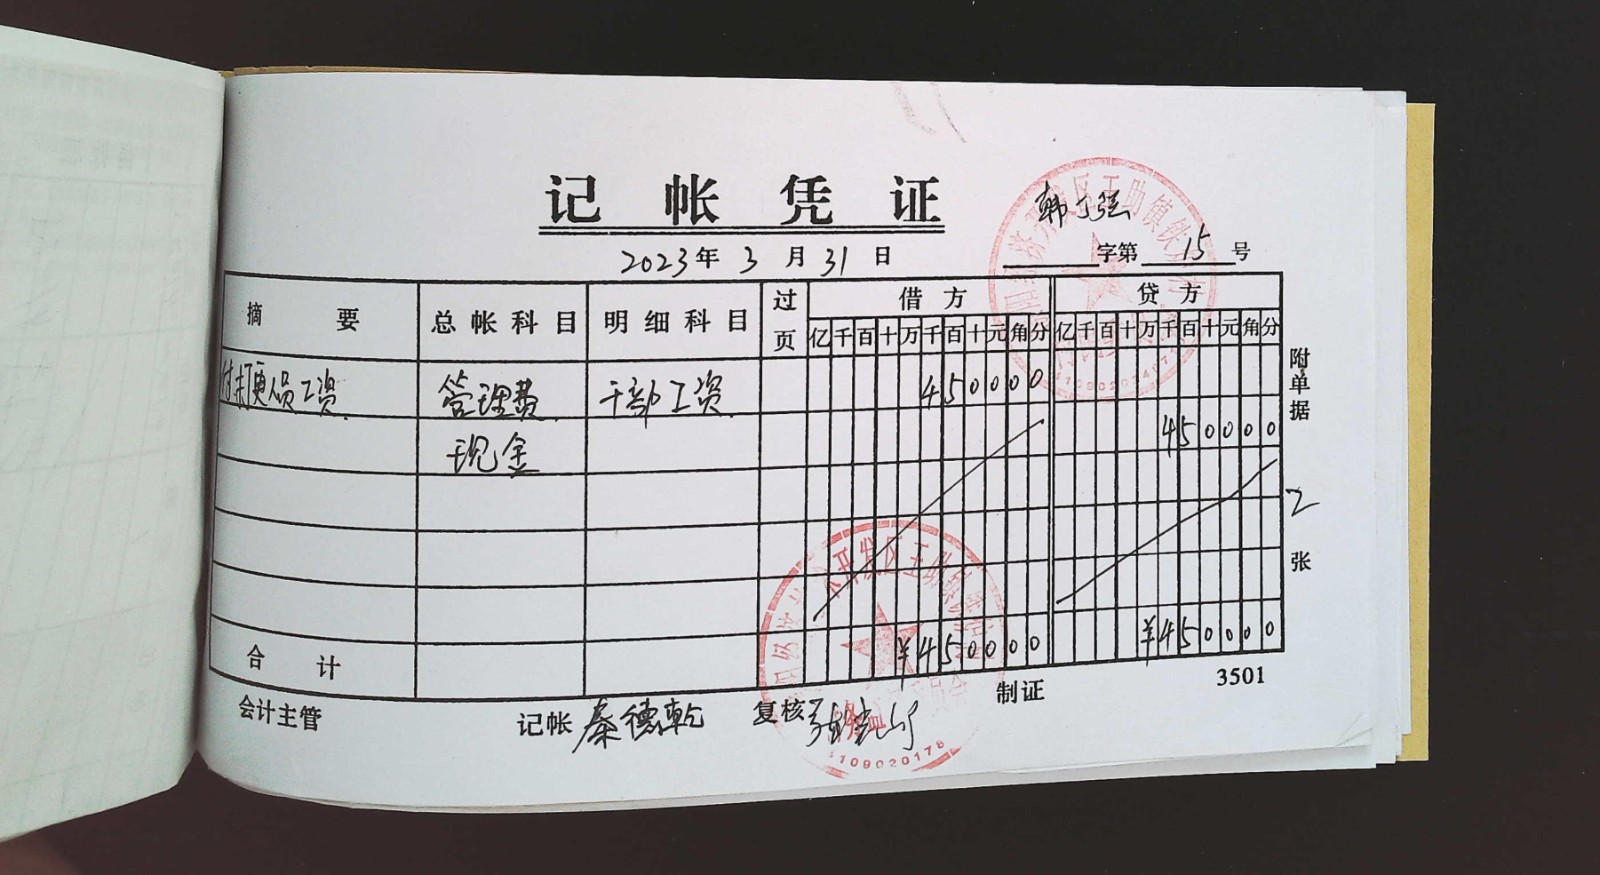 记帐凭证
2023年3月31日
字第15号
摘要 总帐科目 明细科目 过页 借方 贷方
亿千百十万千百十元角分 亿千百十万千百十元角分
付打更人员工资 管理费 干部工资 450000
现金 450000
合计 ¥450000 ¥450000
附单据 2 张
会计主管 记帐 秦德乾 复核 制证
3501
开发区王助镇
1109020178